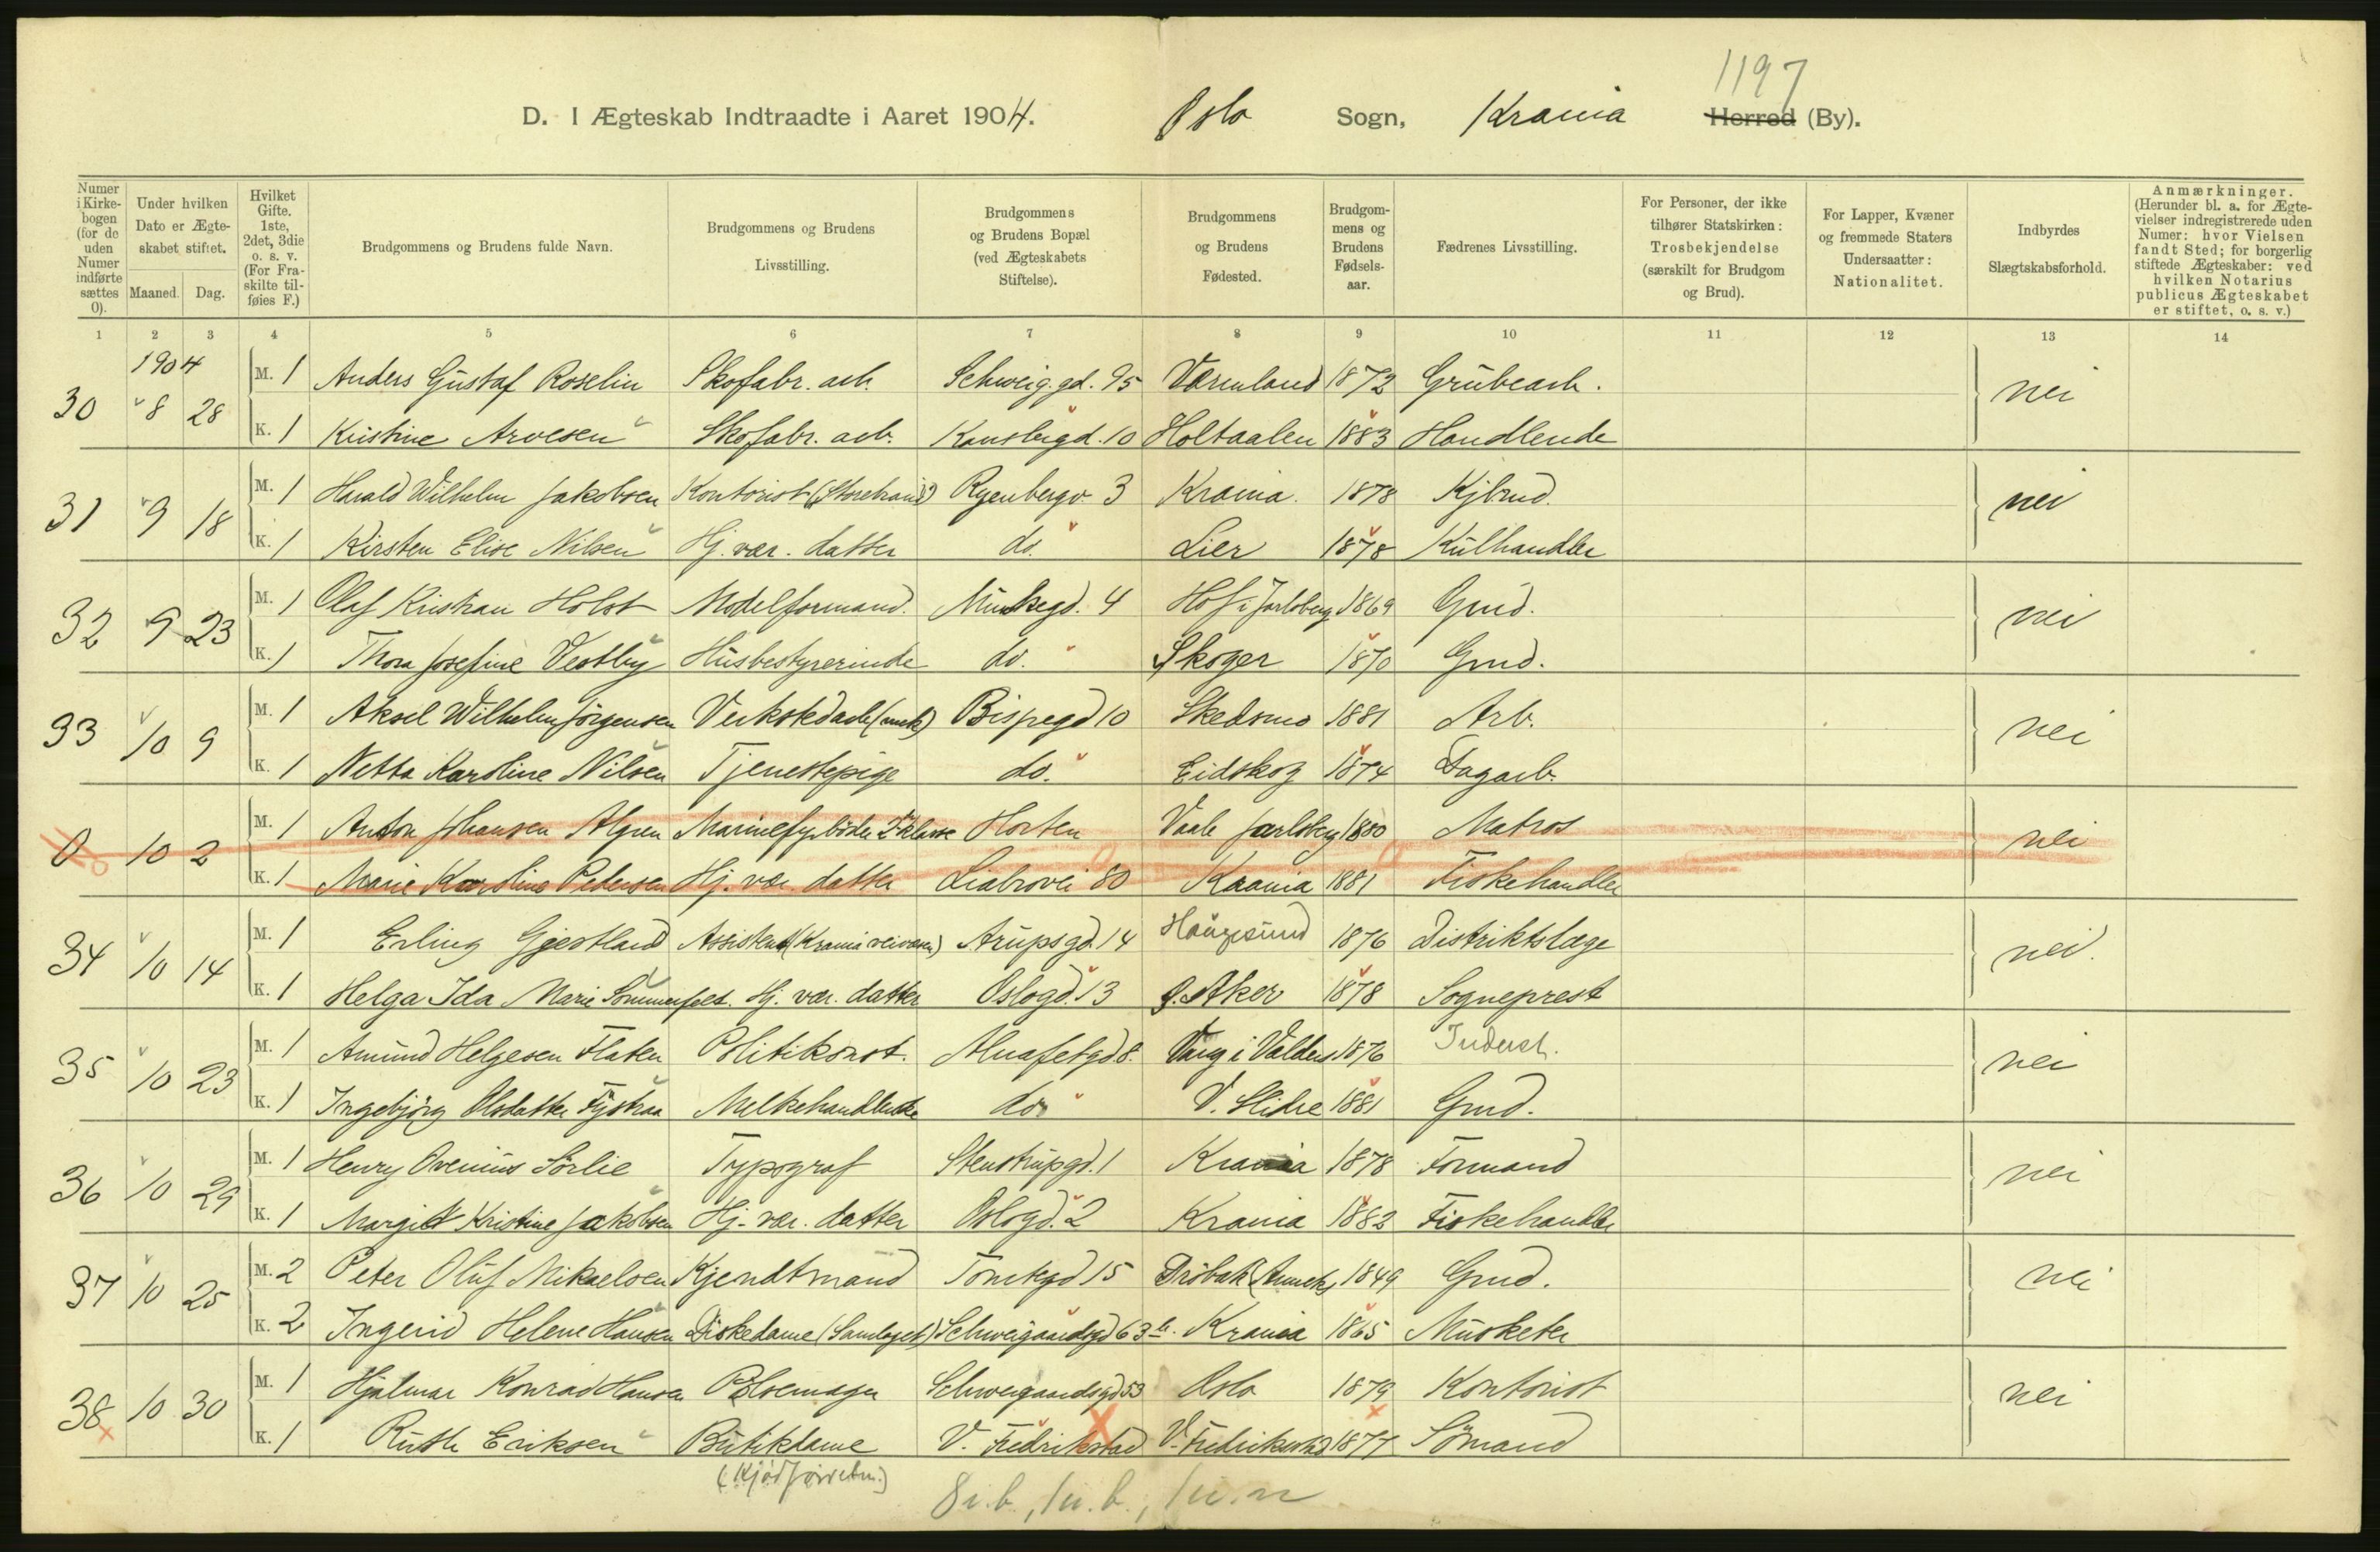 1197
D. I Ægteskab Indtraadte i Aaret 1904. Oslo Sogn, Krania Herred (By).
Numer i Kirkebogen (for de uden Numer indførte sættes 0).
Under hvilken Dato er Ægteskabet stiftet.
Maaned. Dag.
Hvilket Gifte. 1ste, 2det, 3die o. s. v. (For Fraskilte tilføies F.)
Brudgommens og Brudens fulde Navn.
Brudgommens og Brudens Livsstilling.
Brudgommens og Brudens Bopæl (ved Ægteskabets Stiftelse).
Brudgommens og Brudens Fødested.
Brudgommens og Brudens Fødselsaar.
Fædrenes Livsstilling.
For Personer, der ikke tilhører Statskirken: Trosbekjendelse (særskilt for Brudgom og Brud).
For Lapper, Kvæner og fremmede Staters Undersaatter: Nationalitet.
Indbyrdes Slægtskabsforhold.
Anmærkninger. (Herunder bl. a. for Ægtevielser indregistrerede uden Numer: hvor Vielsen fandt Sted; for borgerlig stiftede Ægteskaber: ved hvilken Notarius publicus Ægteskabet er stiftet, o. s. v.)
1 2 3 4 5 6 7 8 9 10 11 12 13 14
1904
M. 1 Anders Gustaf Roselin Skofabr. arb. Schweig.gd. 95 Värmland 1872 Grubearb.
30 8 28 nei
K. 1 Kristine Arvesen Skofabr. arb. 10 Holtaalen 1883 Handlende
M. 1 Harald Wilhelm Jakobsen Kontorist Ryenbergv. 3 Krania. 1878 Kjbmd.
31 9 18 nei
K. 1 Kirsten Elise Nilsen Hj. vær. datter do. Lier 1878 Kulhandler
M. 1 Olaf Kristian Holst Modelformand. Munkegd. 4 Hof i Jarlsberg 1869 Gmd.
32 9 23 nei
K. 1 Thora Josefine Vestby Husbestyrerinde do. Skoger 1870 Gmd.
M. 1 Aksel Wilhelm Jørgensen Bispegd 10 Skedsmo 1881 Arb.
33 10 9 nei
K. 1 Netta Karoline Nilsen Tjenestepige do. Eidskog 1874 Dagarb.
M. 1 Anton Johansen Algren Marinefyrbøder 2den klasse Horten Vaale Jarlsberg 1880 Matros
0 10 2 nei
K. 1 Marie Karoline Pedersen Hj. vær. datter Liabrovei 80 Krania 1881 Fiskehandler
M. 1 Erling Gjestland Assistent (Krania veivæsen) Arupsgd. 14 Haugesund 1876 Distriktslæge
34 10 14 nei.
K. 1 Helga Ida Marie Sommerfelt. Hj. vær. datter Oslogd. 13 Ø. Aker 1878 Sogneprest
M. 1 Amund Helgesen Flaten Politikonst. Alnafetgd 8. Vang i Valders 1876 Inderst.
35 10 23 nei
K. 1 Ingebjörg Olsdatter Melkehandlerske do. V. Slidre 1881 Gmd.
M. 1 Henry Ovenius Sörlie Typograf Stenstrupgd. 1 Krania 1878 Formand
36 10 29 nei
K. 1 Margit Kristine Jakobsen Hj. vær. datter Oslogd. 2 Krania 1882 Fiskehandler
M. 2 Peter Oluf Mikaelsen Kjendtmand Tomtegd 15 Dröbak (Anneks) 1849 Gmd.
37 10 25 nei
K. 2 Ingerid Helene Hansen Diskedame (Samlaget) Schweigaardsgd 63 b. Krania 1865 Musketer
M. 1 Hjalmar Konrad Hansen Pölsemager Schweigaardsgd 53 Oslo 1879 Kontorist
38 10 30 nei
K. 1 Ruth Eriksen Butikdame V. Fredrikstad V. Fredrikstad 1877 Sömand
8 i.b., 1 u.b., 1 u.n